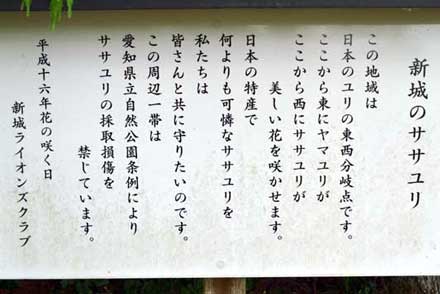 新城のササユリ
この地域は
日本のユリの東西分岐点です。
ここから東にヤマユリが
ここから西にササユリが
美しい花を咲かせます。
日本の特産で
何よりも可憐なササユリを
私たちは
皆さんと共に守りたいのです。
この周辺一帯は
愛知県立自然公園条例により
ササユリの採取損傷を
禁じています。
平成十六年花の咲く日
新城ライオンズクラブ